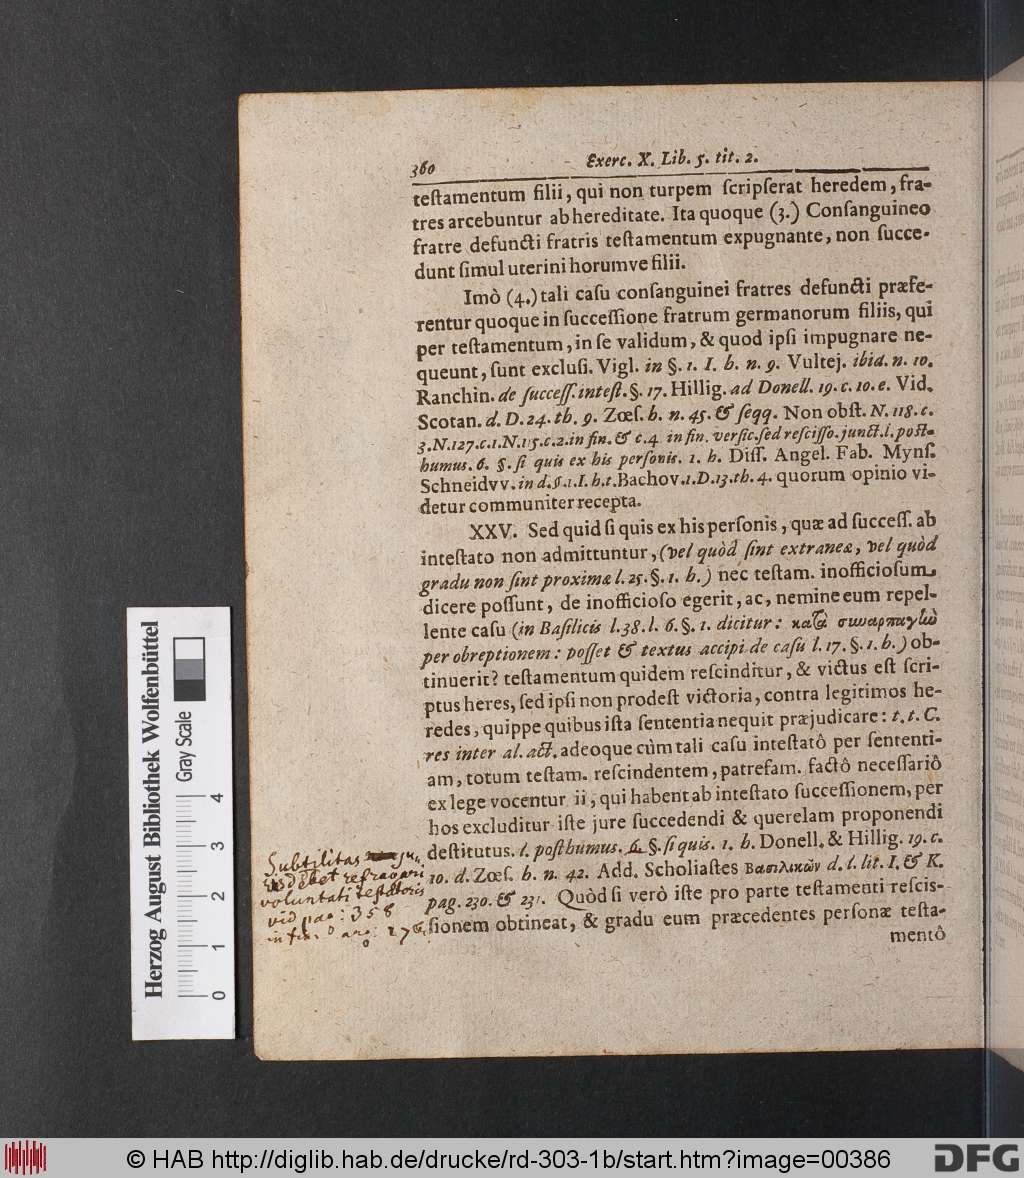 360
Exerc. X. Lib. 5. tit. 2.
teſtamentum filii, qui non turpem ſcripſerat heredem, fra-
tres arcebuntur ab hereditate. Ita quoque (3.) Conſanguineo
fratre defuncti fratris teſtamentum expugnante, non ſucce-
dunt ſimul uterini horumve filii.
Imò (4.) tali caſu conſanguinei fratres defuncti præfe-
rentur quoque in ſucceſſione fratrum germanorum filiis, qui
per teſtamentum, in ſe validum, & quod ipſi impugnare ne-
queunt, ſunt excluſi. Vigl. in §. 1. I. h. n. 9. Vultej. ibid. n. 10.
Ranchin. de ſucceſſ. inteſt. §. 17. Hillig. ad Donell. 19. c. 10. e. Vid.
Scotan. d. D. 24. th. 9. Zœſ. h. n. 45. & ſeqq. Non obſt. N. 118. c.
3. N. 127. c. 1. N. 115. c. 2. in fin. & c. 4 in fin. verſic. ſed reſciſſo. junct. l. poſt-
humus. 6. §. ſi quis ex his perſonis. 1. h. Diſſ. Angel. Fab. Mynſ.
Schneidvv. in d. §. 1. I. h. t. Bachov. 1. D. 13. th. 4. quorum opinio vi-
detur communiter recepta.
XXV. Sed quid ſi quis ex his perſonis, quæ ad ſucceſſ. ab
inteſtato non admittuntur, (vel quòd ſint extraneæ, vel quòd
gradu non ſint proximæ l. 25. §. 1. h.) nec teſtam. inofficioſum
dicere poſſunt, de inofficioſo egerit, ac, nemine eum repel-
lente caſu (in Baſilicis l. 38. l. 6. §. 1. dicitur: κατὰ συναρπαγὴν
per obreptionem: poſſet & textus accipi de caſu l. 17. §. 1. h.) ob-
tinuerit? teſtamentum quidem reſcinditur, & victus eſt ſcri-
ptus heres, ſed ipſi non prodeſt victoria, contra legitimos he-
redes, quippe quibus iſta ſententia nequit præjudicare: t. t. C.
res inter al. act. adeoque cùm tali caſu inteſtatô per ſententi-
am, totum teſtam. reſcindentem, patrefam. factô neceſſariô
ex lege vocentur ii, qui habent ab inteſtato ſucceſſionem, per
hos excluditur iſte jure ſuccedendi & querelam proponendi
deſtitutus. l. poſthumus. 6. §. ſi quis. 1. h. Donell. & Hillig. 19. c.
10. d. Zœſ. h. n. 42. Add. Scholiaſtes Βασιλικῶν d. l. lit. I. & K.
pag. 230. & 231. Quòd ſi verò iſte pro parte teſtamenti reſciſ-
ſionem obtineat, & gradu eum præcedentes perſonæ teſta-
mentô
Subtilitas
debet refragari
voluntati testatoris
vid pag: 358
in fin.
Herzog August Bibliothek Wolfenbüttel
Gray Scale
0 1 2 3 4
© HAB http://diglib.hab.de/drucke/rd-303-1b/start.htm?image=00386
DFG